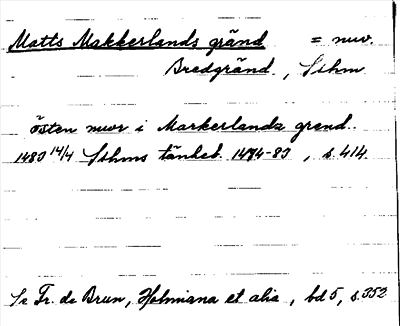 Matts Makkerlands gränd = nuv.
Bredgränd, Sthm
östen mwr i Markerlandz grend.
1483 14/4 Sthms tänkeb. 1474-83, s. 414.
Se Fr. de Brun, Holmiana et alia, bd 5, s. 352